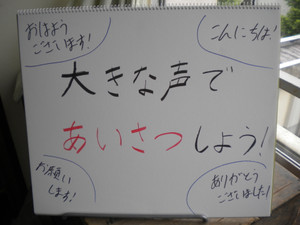 おはよう
ございます!
こんにちは!
大きな声で
あいさつしよう!
お願い
します!
ありがとう
ございました!